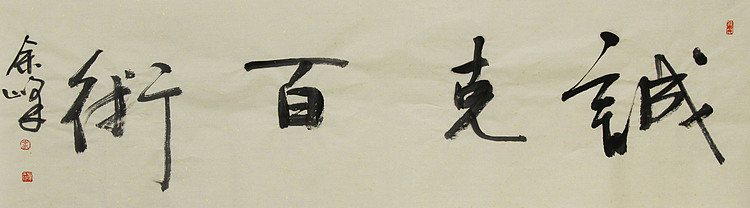 誠克百術
余峰